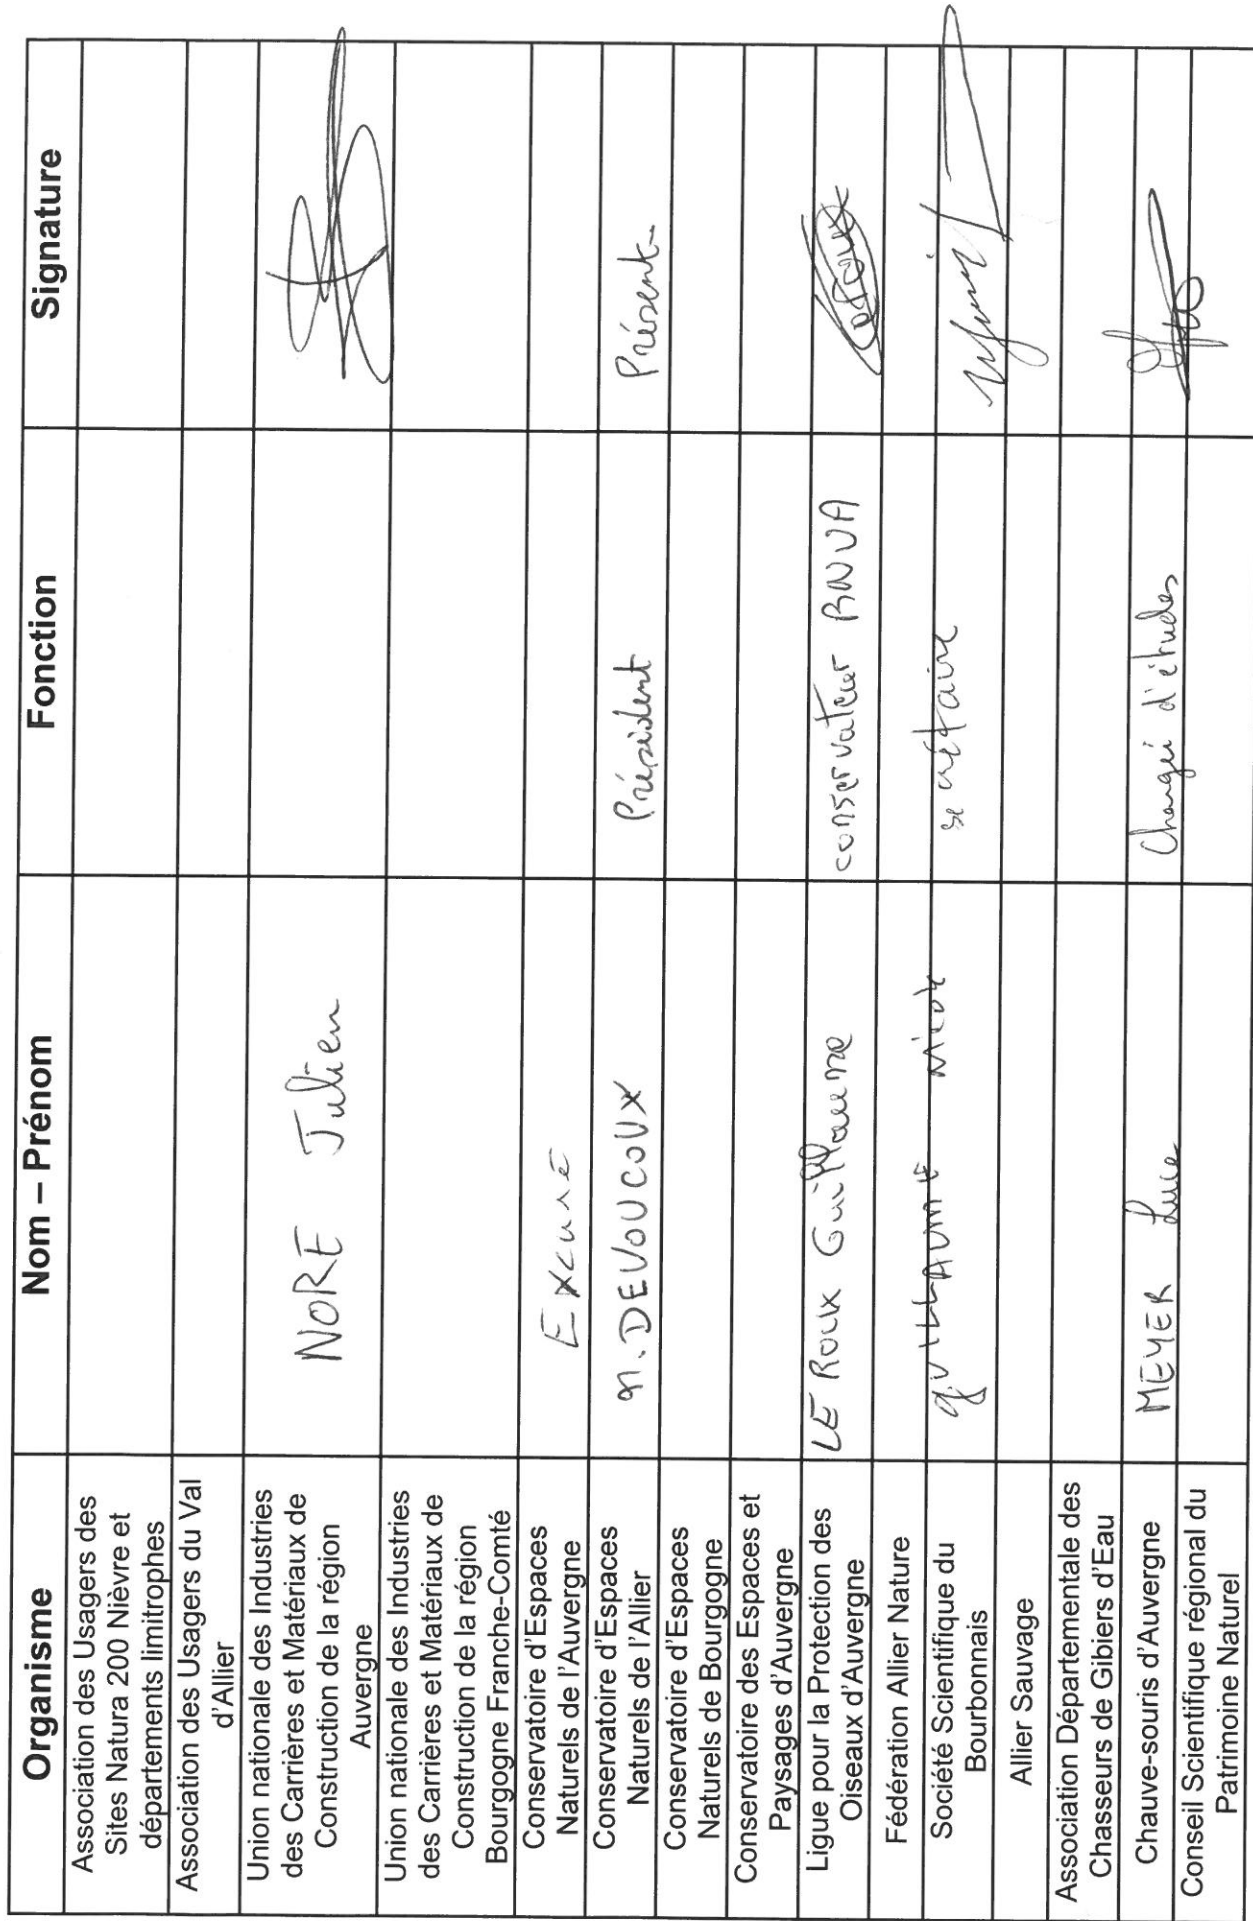 Organisme Nom – Prénom Fonction Signature
Association des Usagers des
Sites Natura 200 Nièvre et
départements limitrophes
Association des Usagers du Val
d'Allier
Union nationale des Industries
des Carrières et Matériaux de
Construction de la région
Auvergne
NORE Julien
Union nationale des Industries
des Carrières et Matériaux de
Construction de la région
Bourgogne Franche-Comté
Conservatoire d'Espaces
Naturels de l'Auvergne
Excusé
Conservatoire d'Espaces
Naturels de l'Allier
M. DEVOUCOUX Président Présent
Conservatoire d'Espaces
Naturels de Bourgogne
Conservatoire des Espaces et
Paysages d'Auvergne
Ligue pour la Protection des
Oiseaux d'Auvergne
LE ROUX Guillaume conservateur RNVA
Fédération Allier Nature
Société Scientifique du
Bourbonnais
guillaume secrétaire
Allier Sauvage
Association Départementale des
Chasseurs de Gibiers d'Eau
Chauve-souris d'Auvergne
MEYER Luce Chargée d'études
Conseil Scientifique régional du
Patrimoine Naturel